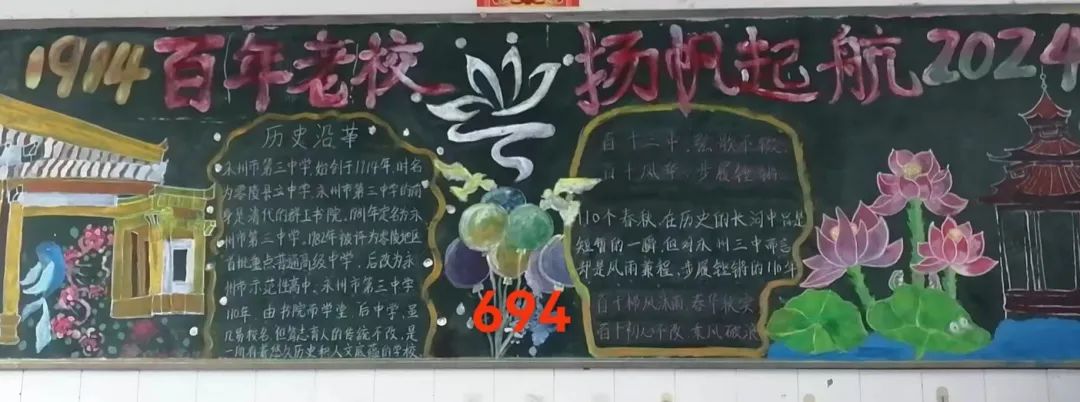 1914 百年老校 扬帆起航 2024
历史沿革
永州市第三中学,始创于1714年,时名
为零陵县立中学,永州市第三中学的前
身是清代的群玉书院,1981年定名为永
州市第三中学,1982年被评为零陵地区
首批重点普通高级中学,后改为永
州市示范性高中、永州市第三中学
110年,由书院而学堂,后中学,虽
几易校名,但笃志育人的传统不改,是
一所有着悠久历史和人文底蕴的学校
百十三中,弦歌不辍
百十风华,步履铿锵
110个春秋,在历史的长河中只是
短暂的一瞬,但对永州三中而言
却是风雨兼程,步履铿锵的110年
百十栉风沐雨 春华秋实
百十初心不改 乘风破浪
694